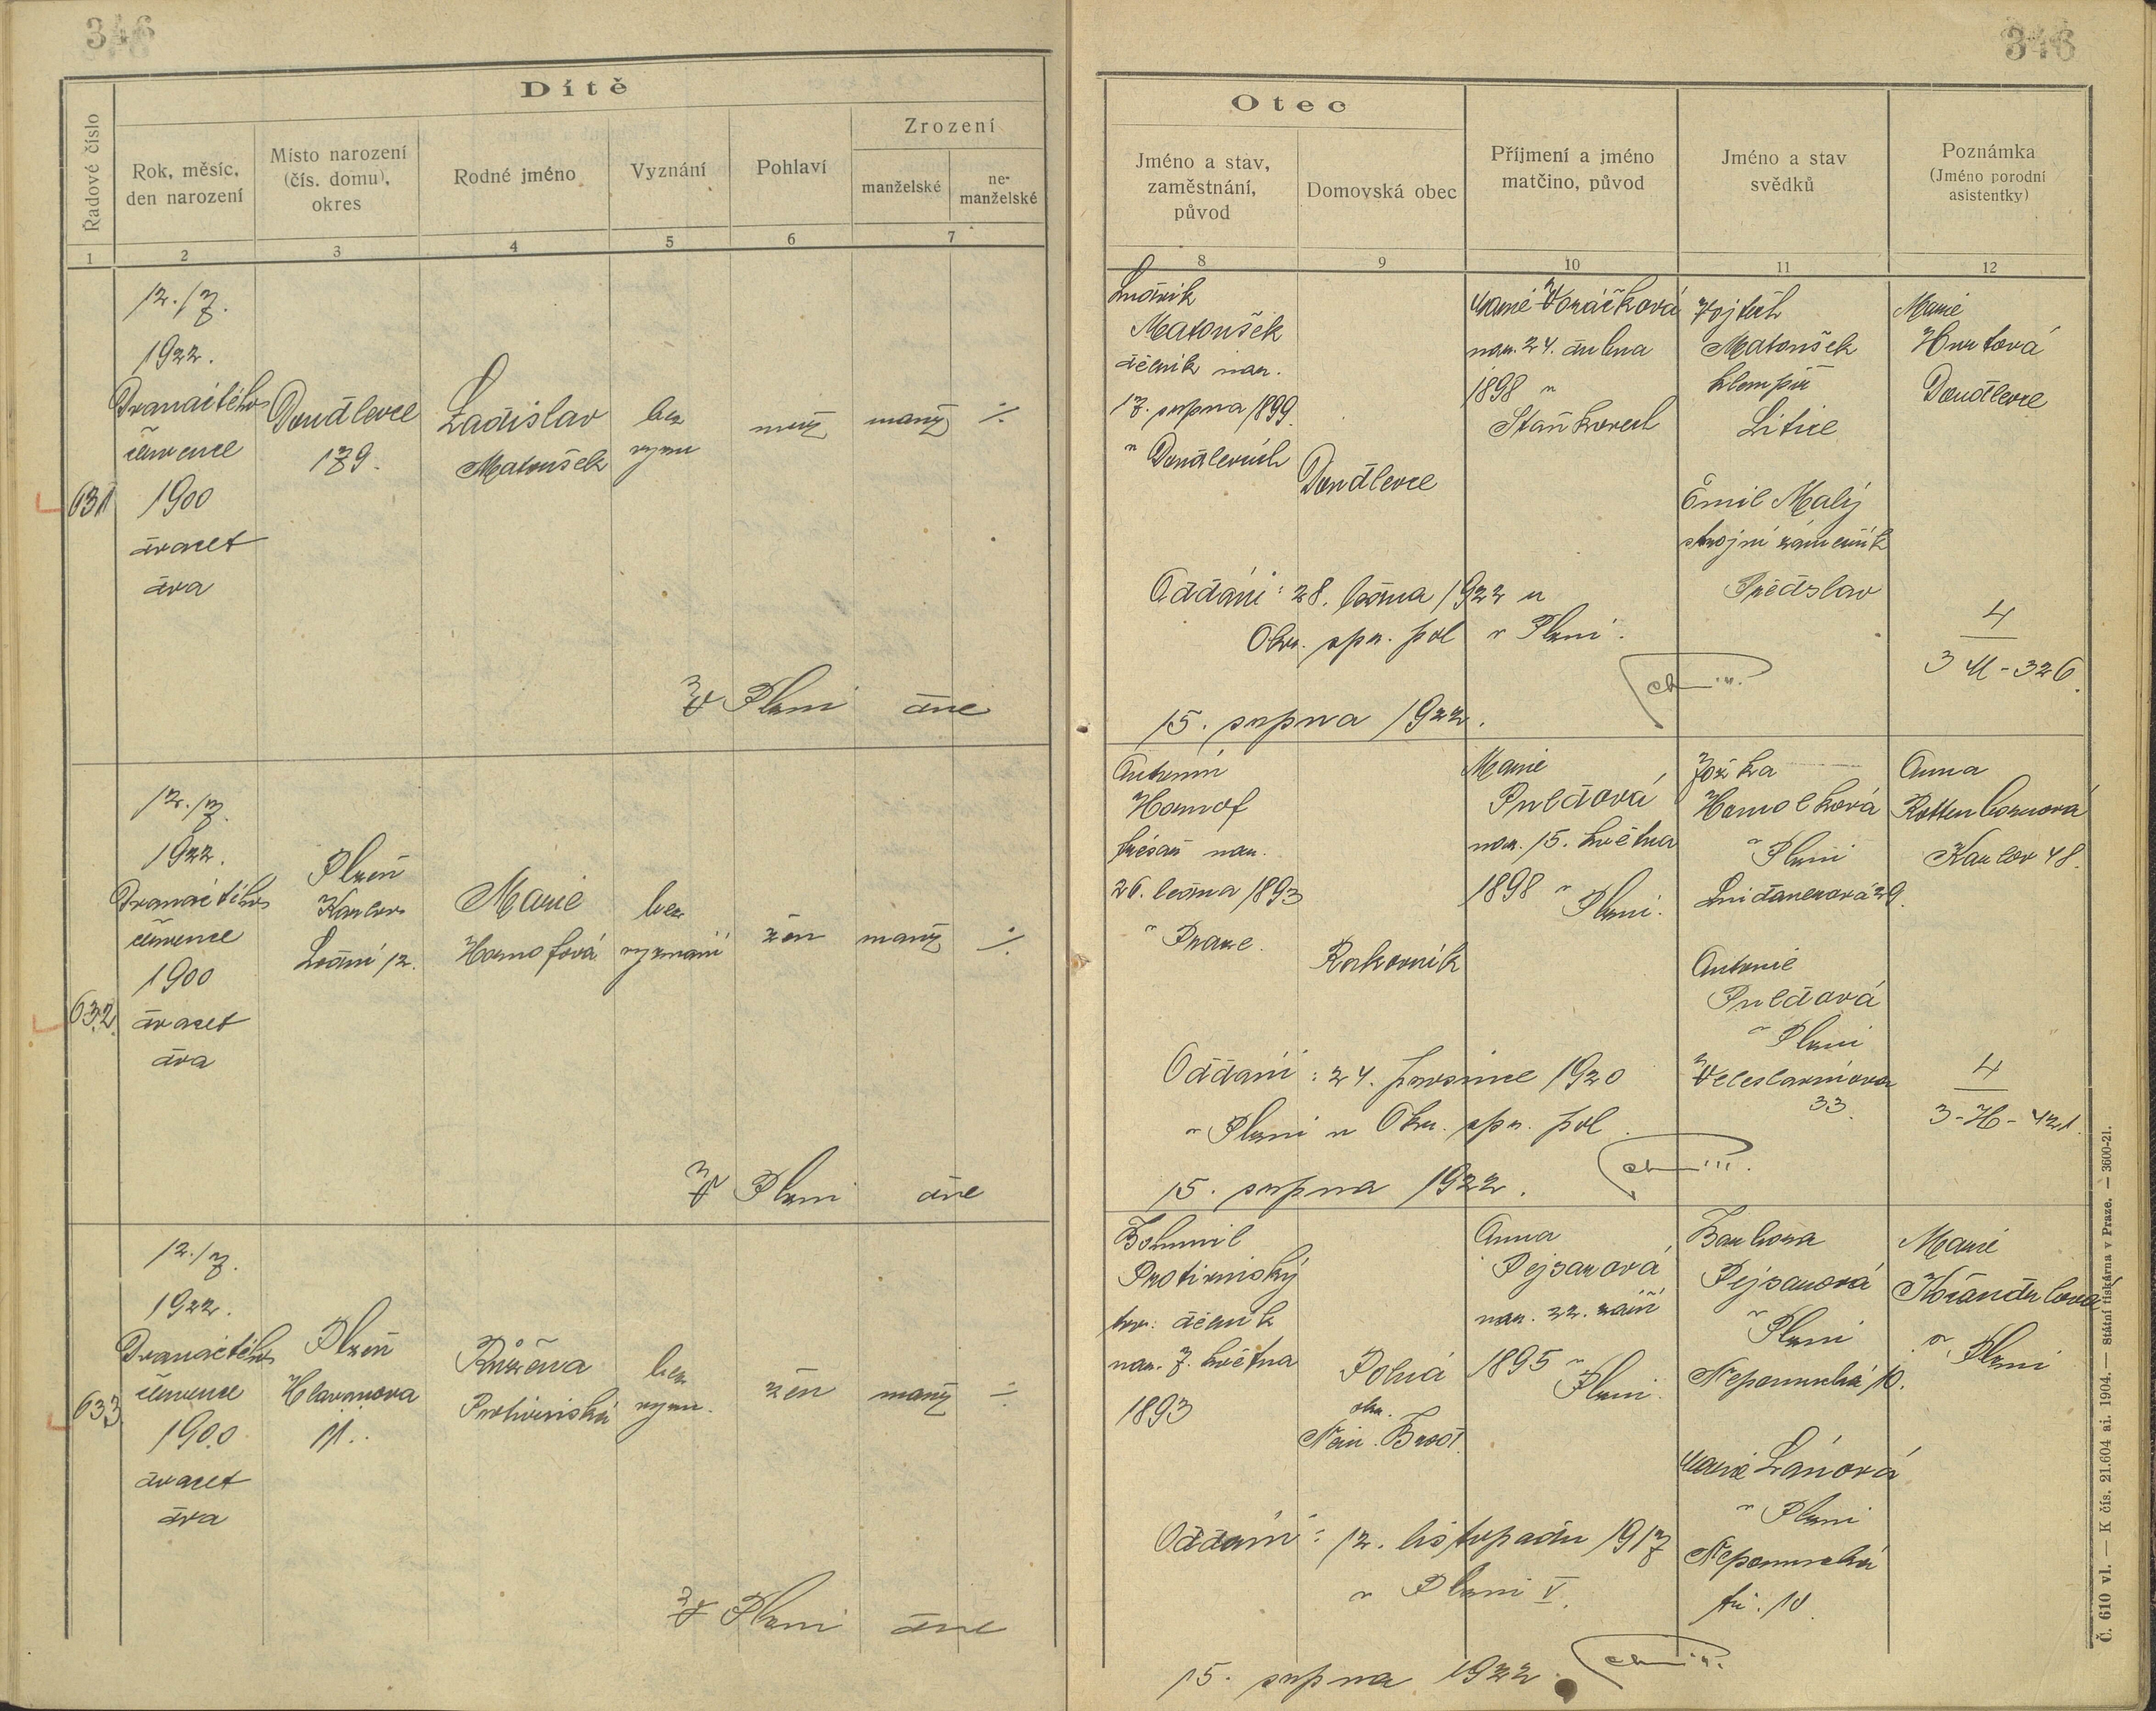 346
346
Dítě
Řadové číslo
Rok, měsíc,
den narození
Místo narození
(čís. domu),
okres
Rodné jméno
Vyznání
Pohlaví
Zrození
manželské
ne-
manželské
1
2
3
4
5
6
7
Otec
Jméno a stav,
zaměstnání,
původ
Domovská obec
Příjmení a jméno
matčino, původ
Jméno a stav
svědků
Poznámka
(Jméno porodní
asistentky)
8
9
10
11
12
631
12./7.
1922.
Dvanáctého
července
1900
dvacet
dva
Doudlevce
179.
Ladislav
Matoušek
bez
vyzn
muž
manž
÷
V Plzni dne
Ludvík
Matoušek
dělník nar.
17. srpna 1899.
v Doudlevcích
Doudlevce
Marie Voráčková
nar. 24. dubna
1898 v
Staňkovech
Vojtěch
Matoušek
klempíř
Litice
Emil Malý
strojní zámečník
Předslav
Marie
Hurtová
Doudlevce
Oddáni: 28. ledna 1922 u
Okr. spr. pol v Plzni.
4
3 M-326.
15. srpna 1922.
632.
12./7.
1922.
Dvanáctého
července
1900
dvacet
dva
Plzeň
Karlov
Lední 12.
Marie
Homofová
bez
vyznání
žen
manž
÷
V Plzni dne
Antonín
Homof
řezař nar.
26. ledna 1893
v Praze.
Rakovník
Marie
Puldová
nar. 15. května
1898 v
Plzni.
Jožka
Homolková
v Plzni
29.
Antonie
Puldová
v Plzni
Veleslavínova
33.
Anna
Rottenbornová
Karlov 48.
Oddáni: 24. prosince 1920
v Plzni u Okr. spr. pol.
4
3-H-421.
15. srpna 1922.
633
12./7.
1922.
Dvanáctého
července
1900
dvacet
dva
Plzeň
Hlavanova
11.
Růžena
Protivinská
bez
vyzn.
žen
manž
÷
V Plzni dne
Bohumil
Protivinský
tov. dělník
nar. 7. května
1893
Polná
okr.
Něm. Brod.
Anna
Pejsarová
nar. 22. září
1895 v
Plzni.
Barbora
Pejsarová
v Plzni
Nepomucká 10.
Marie Lánová
v Plzni
Nepomucká
tř. 10.
Marie
v Plzni
Oddáni: 12. listopadu 1917
v Plzni V.
15. srpna 1922.
Č. 610 vl. — K čís. 21.604 ai. 1904. — Státní tiskárna v Praze. — 3600-21.